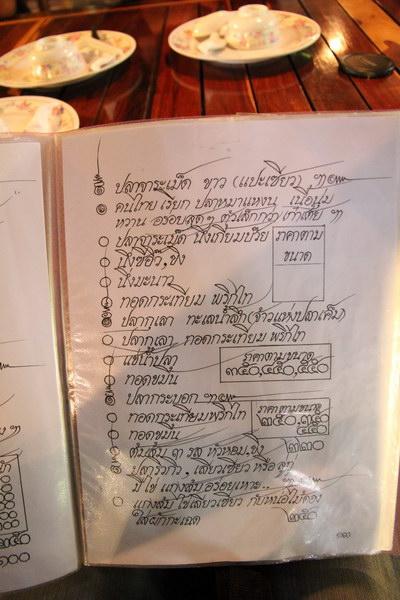 ปลาจาระเม็ด ขาว (แปะเซียว) ๆ
คนไทย เรียก ปลาหมาแหงน เนื้อนุ่ม
หวาน อร่อยสุดๆ ตัวเล็กกว่า เก๋าเต๋ย ๆ
ปลาจาระเม็ด นึ่งเกี้ยมบ๊วย
ราคาตาม
ขนาด
นึ่งซีอิ๊ว, ขิง
นึ่งมะนาว
ทอดกระเทียม พริกไท
ปลากุเลา ทะเลน้ำลึก (จ้าวแห่งปลาเค็ม)
ปลากุเลา ทอดกระเทียม พริกไท
ราคาตามขนาด
แช่น้ำปลา
๓๕๐,๔๕๐,๕๕๐
ทอดขมิ้น
ปลากระบอก ๆ
ทอดกระเทียมพริกไท
ราคาตามขนาด
ทอดขมิ้น
ต้มส้ม ๓ รส หัวหอม, ขิง
๓๒๐
ปลาริวกิว, เสียวเซียว หรือ
มีไข่ แกงส้ม อร่อยเหาะ..
แกงส้ม ไข่เสียวเซียว กับหน่อไม้ดอง
ใส่ผักกระเฉด
๒๕๐